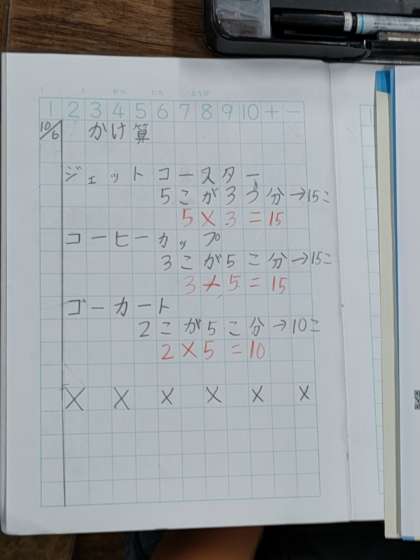 1 2 3 4 5 6 7 8 9 10 + −
10/6 かけ算
ジェットコースター
5こが3う分→15こ
5×3=15
コーヒーカップ
3こが5こ分→15こ
3×5=15
ゴーカート
2こが5こ分→10こ
2×5=10
× × × × × ×